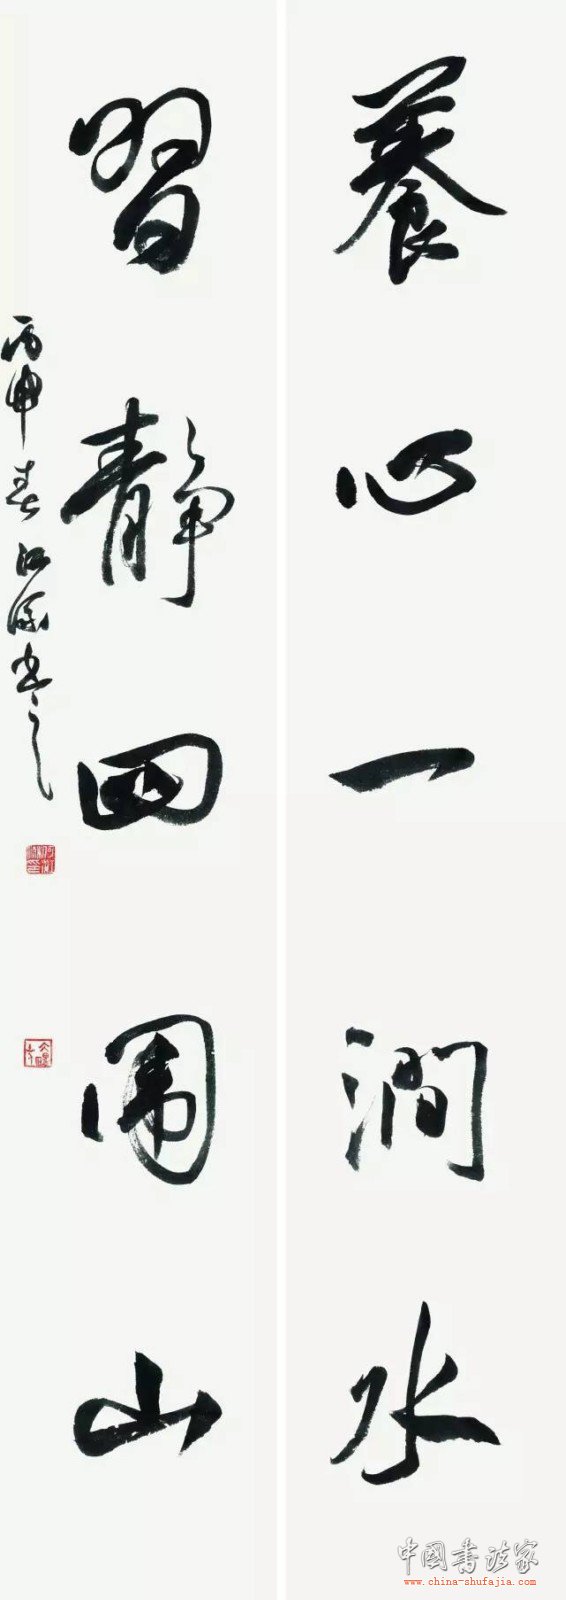 養心一澗水
習靜四围山
丙申春江源书之
中國书法家
www.china-shufajia.com